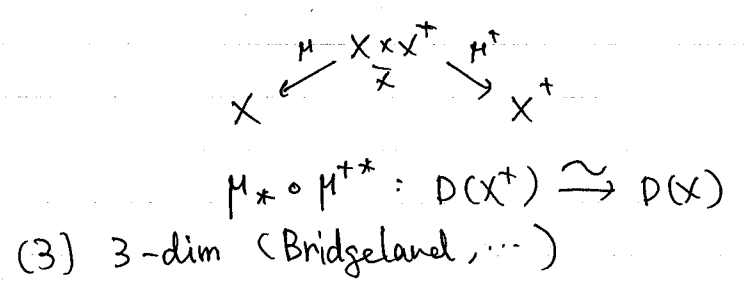 μ X × X⁺ μ⁺
X̄
X X⁺
μ* ∘ μ⁺* : D(X⁺) ⥲ D(X)
(3) 3-dim (Bridgeland, ⋯)